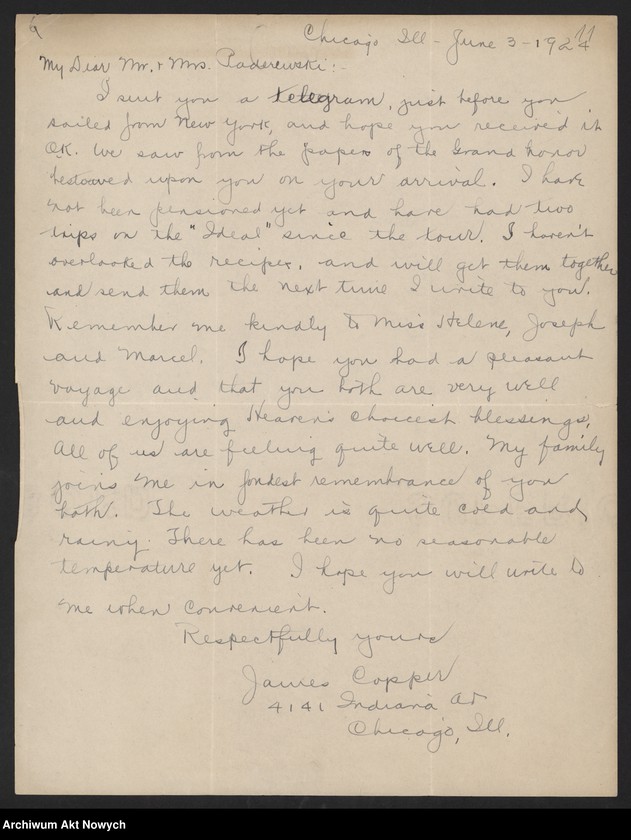 Chicago Ill - June 3 - 1924
My Dear Mr. & Mrs. Paderewski:-
I sent you a telegram, just before you
sailed from New York, and hope you received it
O.K. We saw from the papers of the Grand honor
bestowed upon you on your arrival. I have
not been pensioned yet and have had two
trips on the "Ideal" since the tour. I haven't
overlooked the recipes, and will get them together
and send them the next time I write to you.
Remember me kindly to Miss Helene, Joseph
and Marcel. I hope you had a pleasant
voyage and that you both are very well
and enjoying Heaven's choicest blessings,
All of us are feeling quite well. My family
joins me in fondest remembrance of you
both. The weather is quite cold and
rainy. There has been no seasonable
temperature yet. I hope you will write to
me when convenient.
Respectfully yours
James Copper
4141 Indiana av
Chicago, Ill.
Archiwum Akt Nowych